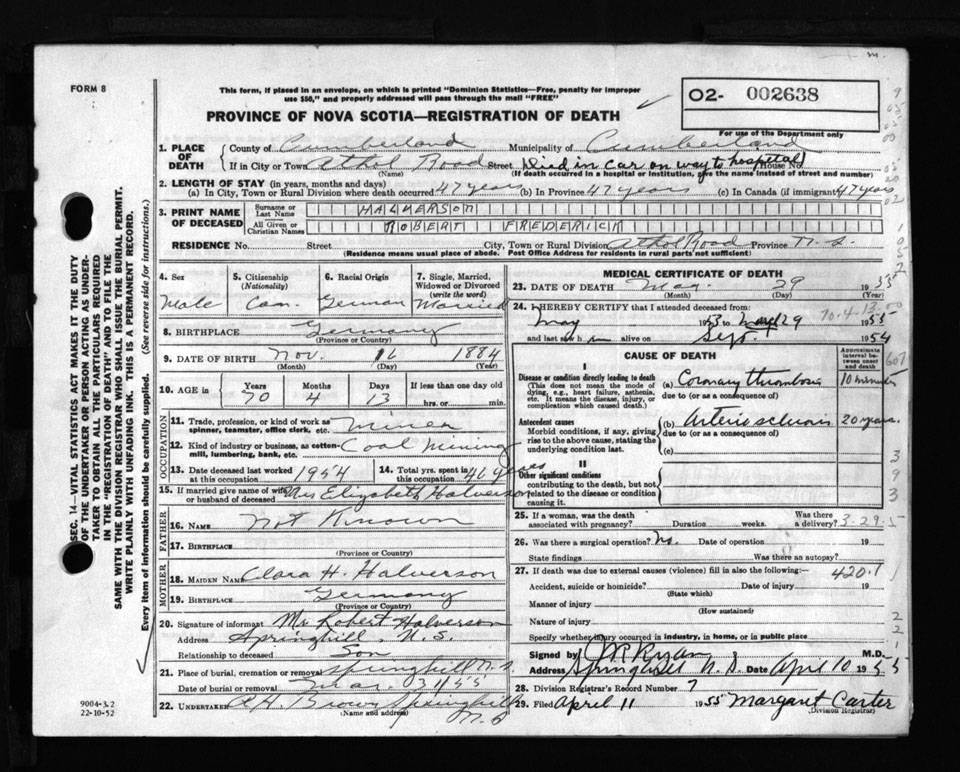 FORM 8
This form, if placed in an envelope, on which is printed "Dominion Statistics—Free, penalty for improper
use $50," and properly addressed will pass through the mail "FREE"
O2- 002638
For use of the Department only
PROVINCE OF NOVA SCOTIA—REGISTRATION OF DEATH
1. PLACE OF DEATH
County of Cumberland Municipality of Cumberland
If in City or Town Athol Road Street (Died in car on way to hospital) House No.
(Name) (If death occurred in a hospital or institution, give the name instead of street and number)
2. LENGTH OF STAY (in years, months and days)
(a) In City, Town or Rural Division where death occurred 47 years (b) In Province 47 years (c) In Canada (if immigrant) 47 years
3. PRINT NAME OF DECEASED
Surname or Last Name HALVERSON
All Given or Christian Names ROBERT FREDERICK
RESIDENCE No. Street City, Town or Rural Division Athol Road Province N.S.
(Residence means usual place of abode. Post Office Address for residents in rural parts not sufficient)
4. Sex Male
5. Citizenship (Nationality) Can.
6. Racial Origin German
7. Single, Married, Widowed or Divorced (write the word) Married
8. BIRTHPLACE Germany
(Province or Country)
9. DATE OF BIRTH Nov. 16 1884
(Month) (Day) (Year)
10. AGE in Years 70 Months 4 Days 13 If less than one day old hrs. or min.
OCCUPATION
11. Trade, profession, or kind of work as spinner, teamster, office clerk, etc. Miner
12. Kind of industry or business, as cotton-mill, lumbering, bank, etc. Coal Mining
13. Date deceased last worked at this occupation 1954
14. Total yrs. spent in this occupation 46 years
15. If married give name of wife or husband of deceased Mrs Elizabeth Halverson
FATHER
16. NAME Not Known
17. BIRTHPLACE
(Province or Country)
MOTHER
18. MAIDEN NAME Clara H. Halverson
19. BIRTHPLACE Germany
(Province or Country)
20. Signature of informant Mr Robert Halverson
Address Springhill, N.S.
Relationship to deceased Son
21. Place of burial, cremation or removal Springhill N.S.
Date of burial or removal Mar. 31/55
22. UNDERTAKER Brown Springhill
(Name and address) N.S
MEDICAL CERTIFICATE OF DEATH
23. DATE OF DEATH Mar. 29 1955
(Month) (Day) (Year)
24. I HEREBY CERTIFY that I attended deceased from: 70.4.13
May 1953 to 29 1955
and last saw h im alive on Sept. 1954
CAUSE OF DEATH
Approximate interval between onset and death
I
Disease or condition directly leading to death
(This does not mean the mode of dying, e.g., heart failure, asthenia, etc. It means the disease, injury, or complication which caused death.)
(a) Coronary thrombosis 10 minutes
due to (or as a consequence of)
Antecedent causes
Morbid conditions, if any, giving rise to the above cause, stating the underlying condition last.
(b) Arterio sclerosis 20 years.
due to (or as a consequence of)
(c)
II
Other significant conditions
contributing to the death, but not related to the disease or condition causing it.
25. If a woman, was the death associated with pregnancy? Duration weeks. Was there a delivery? 3-29-5
26. Was there a surgical operation? No. Date of operation 19
State findings Was there an autopsy?
27. If death was due to external causes (violence) fill in also the following:— 420.1
Accident, suicide or homicide? Date of injury 19
(State which)
Manner of injury
(How sustained)
Nature of injury
Specify whether injury occurred in industry, in home, or in public place
Signed by M.D.
Address Springhill N.S. Date April 10 1955
28. Division Registrar's Record Number 7
29. Filed April 11 1955 Margaret Carter
(Division Registrar)
9004-3.2
22-10-52
SEC. 14—VITAL STATISTICS ACT MAKES IT THE DUTY
OF THE UNDERTAKER OR PERSON ACTING AS UNDER-
TAKER TO OBTAIN ALL THE PARTICULARS REQUIRED
IN THE "REGISTRATION OF DEATH" AND TO FILE THE
SAME WITH THE DIVISION REGISTRAR WHO SHALL ISSUE THE BURIAL PERMIT.
WRITE PLAINLY WITH UNFADING INK. THIS IS A PERMANENT RECORD.
Every item of information should be carefully supplied. (See reverse side for instructions.)